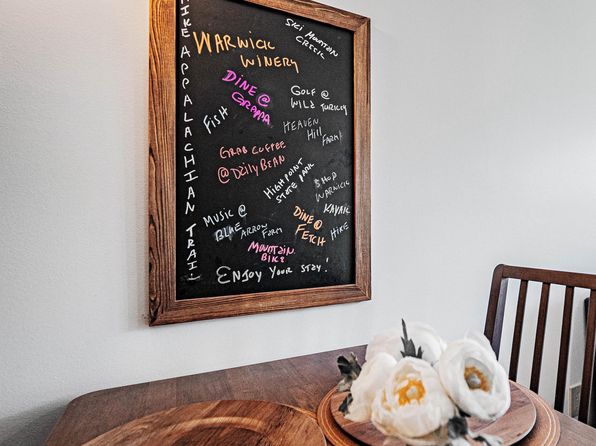 HIKE APPALACHIAN TRAIL
SKI MOUNTAIN
CREEK
WARWICK
WINERY
DINE @
GRAPPA
GOLF @
WILD TURKEY
FISH
HEAVEN
Hill
FARM
GRAB COFFEE
@ DZILY BEAN
HIGH POINT
STATE PARK
SHOP
WARWICK
KAYAK
MUSIC @
BLUE ARROW
FARM
DINE @
FETCH
HIKE
MOUNTAIN
BIKE
ENJOY YOUR STAY!